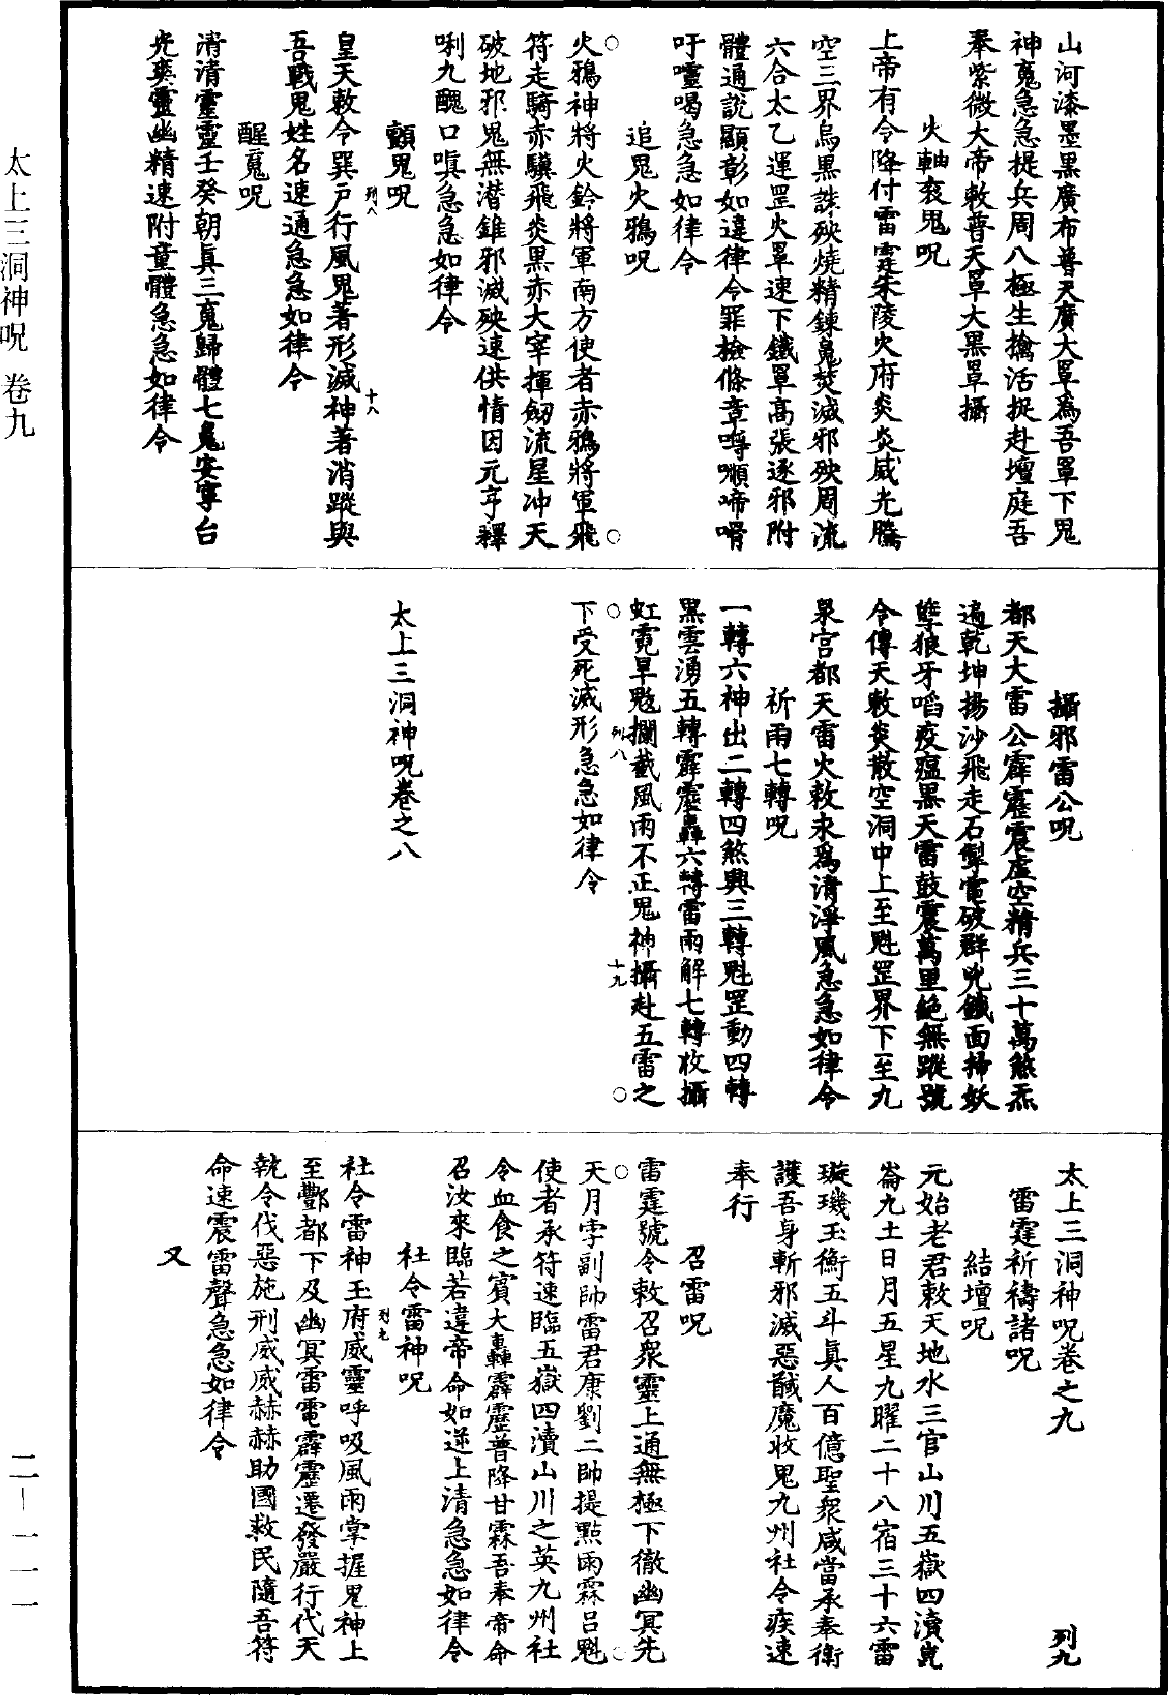 山河漆墨黑廣布普天廣大罩為吾罩下鬼
神魂急急提兵周八極生擒活捉赴壇庭吾
奉紫微大帝敕普天罩大黑罩攝
火軸衮鬼呪
上帝有令降付雷霆朱陵火府炎炎威光騰
空三界烏黑誅殃燒精鍊鬼焚滅邪殃周流
六合太乙運罡火罩速下鐵罩高張逐邪附
體通說顯彰如違律令罪檢條章
吁嚏喝急急如律令
追鬼火鴉呪
火鴉神將火鈴將軍南方使者赤鴉將軍飛
符走騎赤驥飛炎黑赤大宰揮劒流星冲天
破地邪鬼無潛錐邪滅殃速供情因元亨釋
唎九醜口嗔急急如律令
顫鬼呪
列八
十八
皇天敕令巽戶行風鬼著形滅神著消蹤與
吾戰鬼姓名速通急急如律令
醒魔呪
清清靈靈壬癸朝真三魂歸體七魄安寧台
光爽靈幽精速附童體急急如律令
攝邪雷公呪
都天大雷公霹靂震虛空精兵三十萬煞炁
遍乾坤揚沙飛走石掣電破群兇鐵面掃妖
孽狼牙啗疫瘟黑天雷鼓震萬里絕無蹤號
令傳天敕炎散空洞中上至魁罡界下至九
泉宫都天雷火敕永為清淨風急急如律令
祈雨七轉呪
一轉六神出二轉四煞興三轉魁罡動四轉
黑雲湧五轉霹靂轟六轉雷雨解七轉收攝
虹霓旱魃攔截風雨不正鬼神攝赴五雷之
列八
十九
下受死滅形急急如律令
太上三洞神呪卷之八
太上三洞神呪卷之九
列九
雷霆祈禱諸呪
結壇呪
元始老君敕天地水三官山川五嶽四瀆崑
崙九土日月五星九曜二十八宿三十六雷
璇璣玉衡五斗真人百億聖衆咸當承奉衛
護吾身斬邪滅惡馘魔收鬼九州社令疾速
奉行
召雷呪
雷霆號令敕召衆靈上通無極下徹幽冥先
天月孛副帥雷君康劉二帥提點雨霖呂魁
使者承符速臨五嶽四瀆山川之英九州社
令血食之賓大轟霹靂普降甘霖吾奉帝命
召汝來臨若違帝命如逆上清急急如律令
社令雷神呪
列九
社令雷神玉府威靈呼吸風雨掌握鬼神上
至酆都下及幽冥雷電霹靂遷發嚴行代天
執令伐惡施刑威威赫赫助國救民隨吾符
命速震雷聲急急如律令
又
太上三洞神呪 卷九
二—一一一